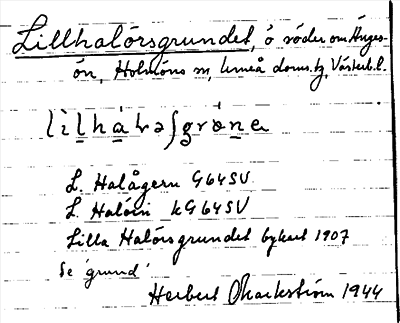 Lillhalörsgrundet, ö söder om Ängesön, Holmöns sn, Umeå doms.tg, Västerb.l.
L. Halågern G64SV
L. Halörn kG64SV
Lilla Halörsgrundet bykart 1907
Se 'grund'
Herbert Markström 1944